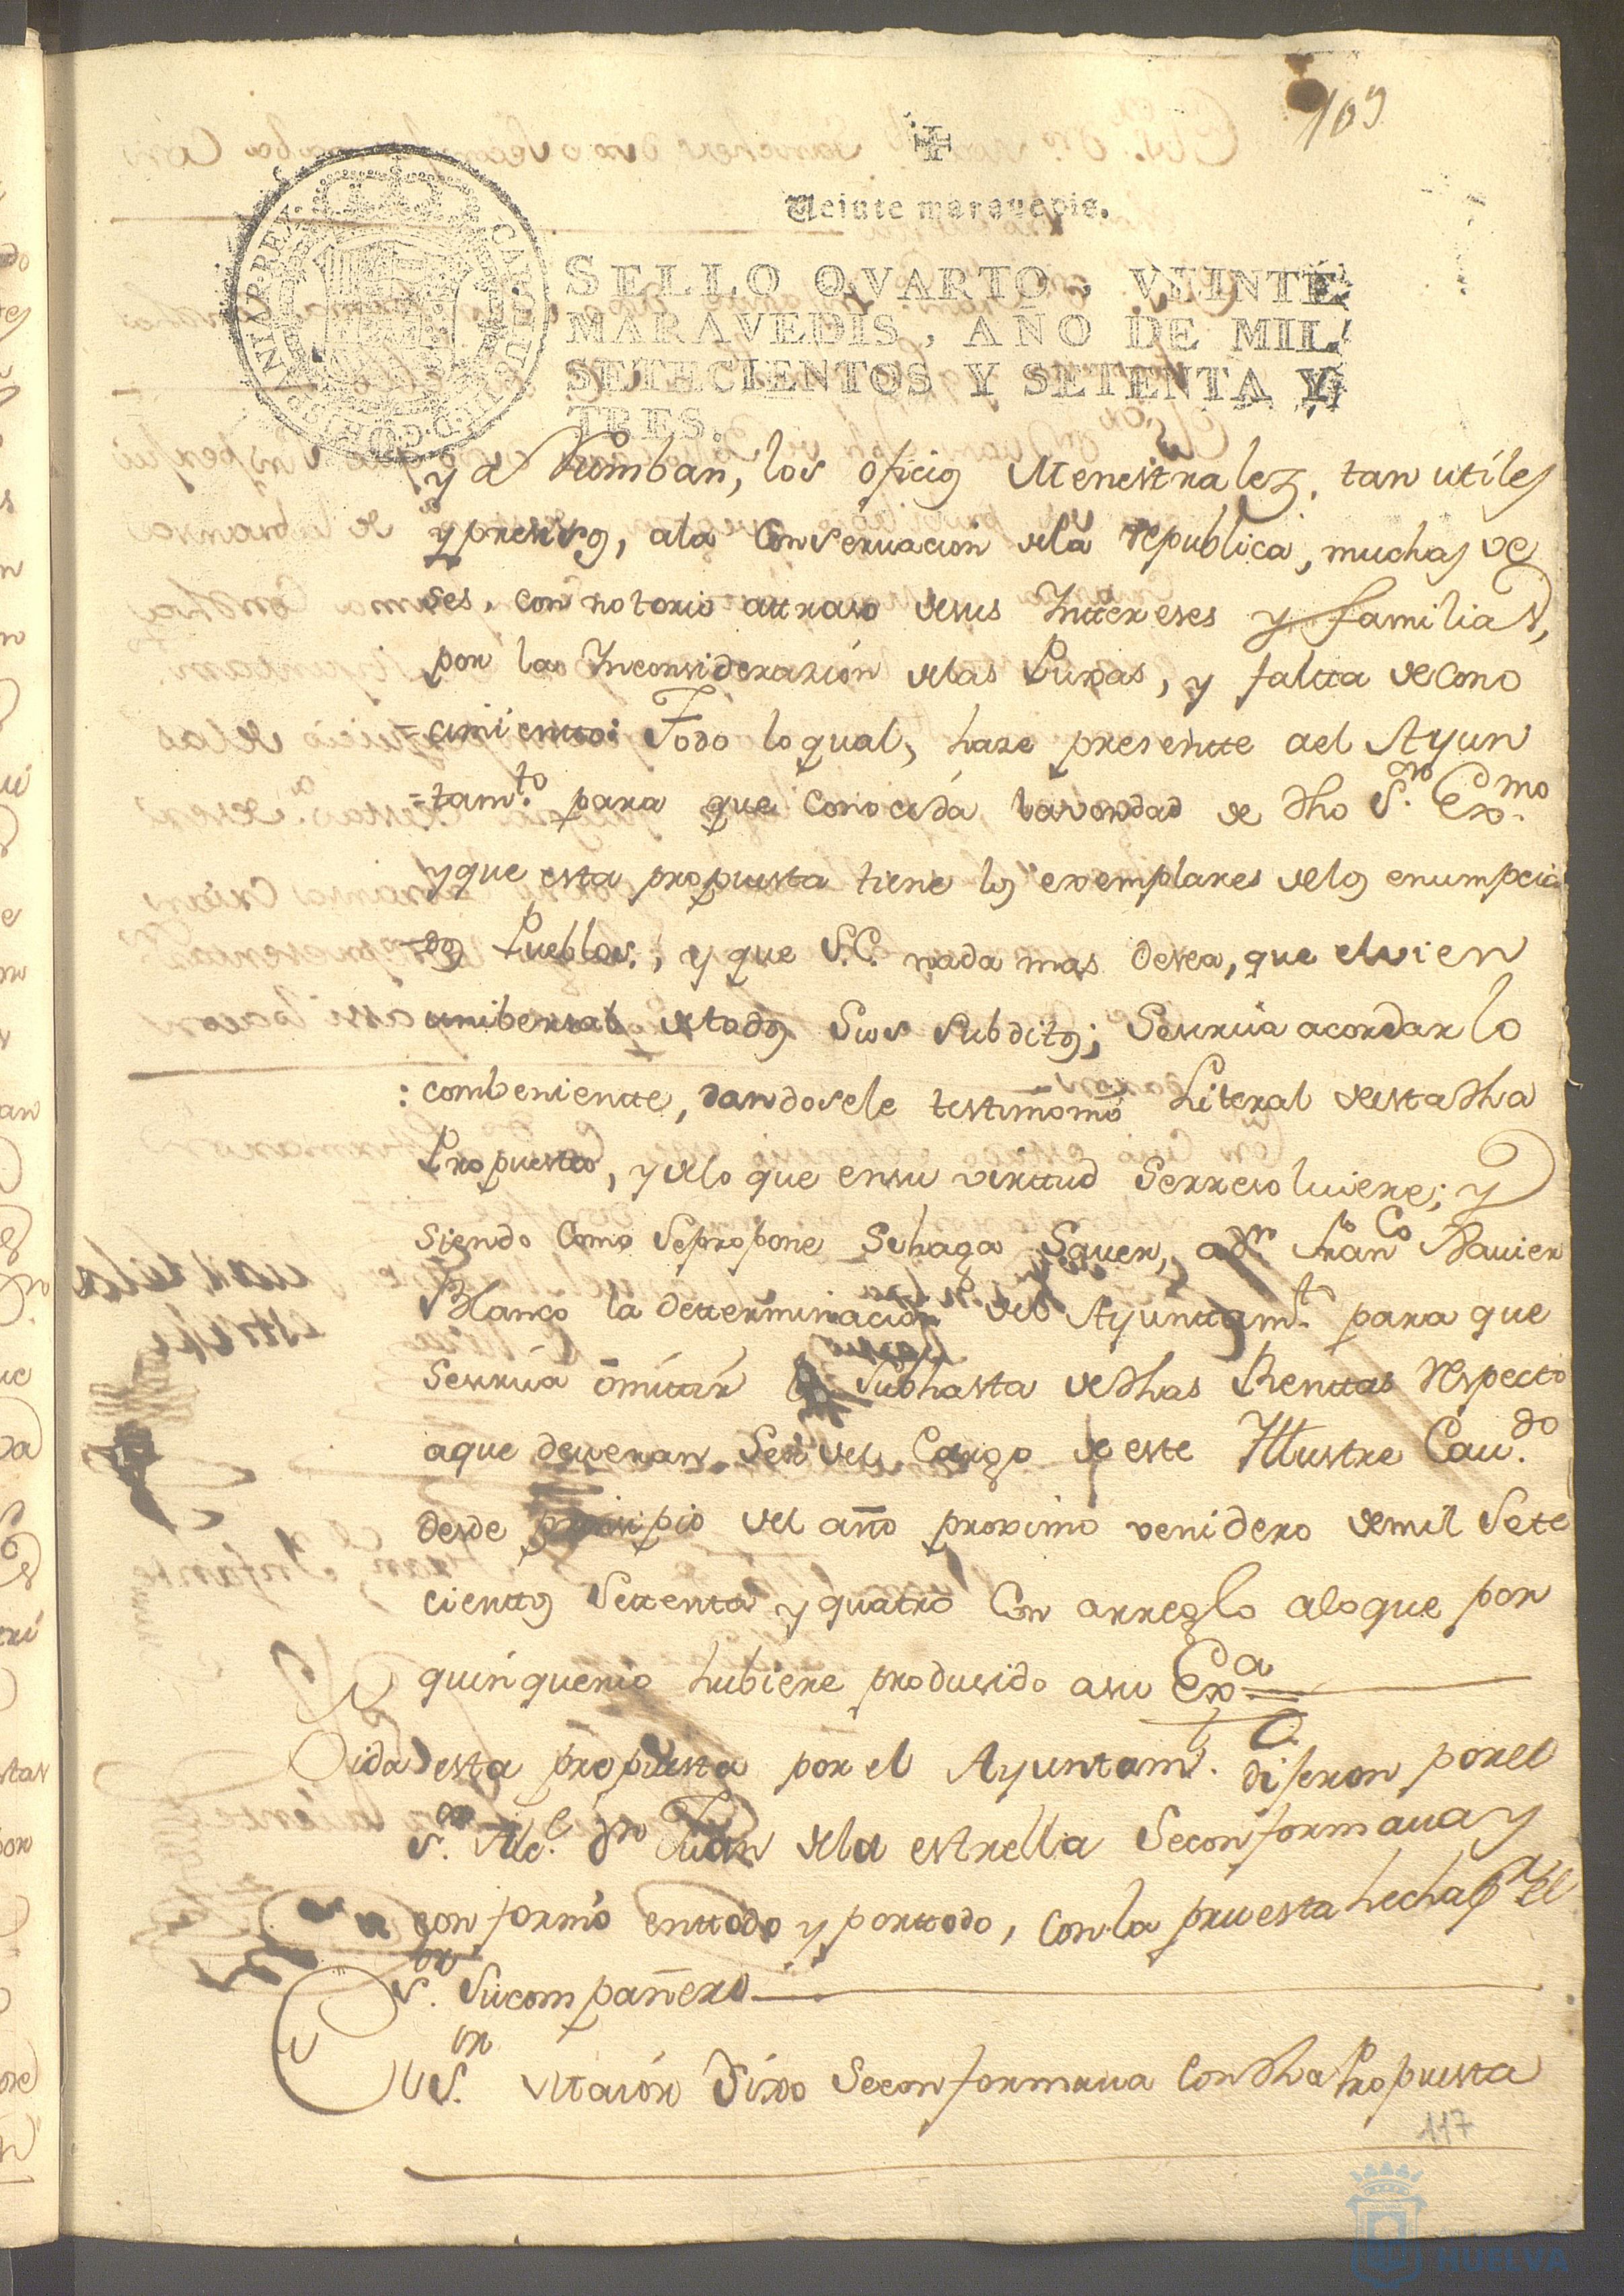 109
Veinte maravedis.
SELLO QVARTO, VEINTE
MARAVEDIS, AÑO DE MIL
SETECIENTOS Y SETENTA Y
TRES.
los oficios Menestrales, tan utiles
y presisos, ala Conservacion dela republica, muchas ve
ses, con notorio attraso desus Inttereses y familias,
por las Inconsiderazión delas Puxas, y faltta de cono
=cimientto: Todo lo qual, haze presentte ael Ayun
=tam.to para que conocida la vondad de dho S.or Exmo.
y que esta propuesta tiene los exemplares delos enumpcia
dos Pueblos, y que S.E. nada mas desea, que el vien
unibersal de todos Sus Subditos; Se sirva acordar lo
: combenientte, dandosele testimonio Literal de esta dha
Propuesta, y de lo que en su virttud Serresolviere; y
siendo Como Sepropone Sehaga Saver, a Dn Franco Xavier
Blanco la detterminacion del Ayunttam.to para que
Se sirva omittir la Subhasta de dhas Renttas respecto
aque deveran Ser del Cargo de este Illustre Cav.do
desde principio del año proximo venidero de mil Sete
cienttos Settenta y quatro Con arreglo aloque por
quinquenio hubiere produsido asu Exa
Oida esta propuesta por el Ayuntam.to dijeron por el
S.or Alc.e Dn Juan dela estrella Seconformava y
conformó enttodo y porttodo, Con la pruesta hecha pr el
S.or Sucompañero
S.or dixo Seconformava Con dha Propuesta
117
HUELVA